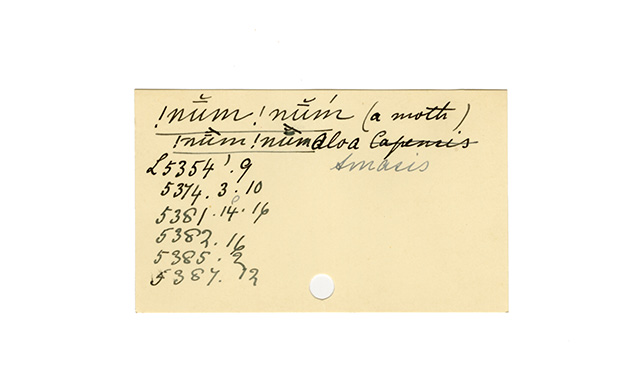 !nŭm !nŭḿ (a moth)
!nŭm !nŭm Aloa Capensis
Amasis
L5354'.9
5374.3.10
5381.14.16
5382.16
5385.2
5387.12